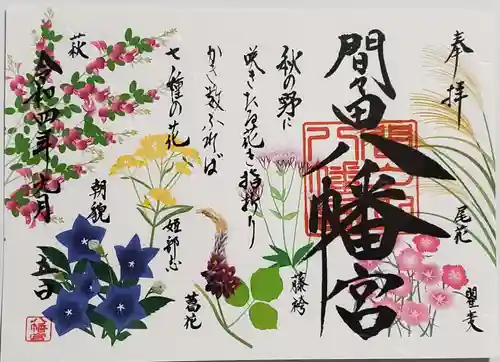 奉拝
間々田八幡宮
秋の野に
咲きたる花を指折り
かき数ふれば
七種の花
萩
令和四年九月
五日
朝貌
姫部志
葛花
藤袴
尾花
瞿麦
八幡宮